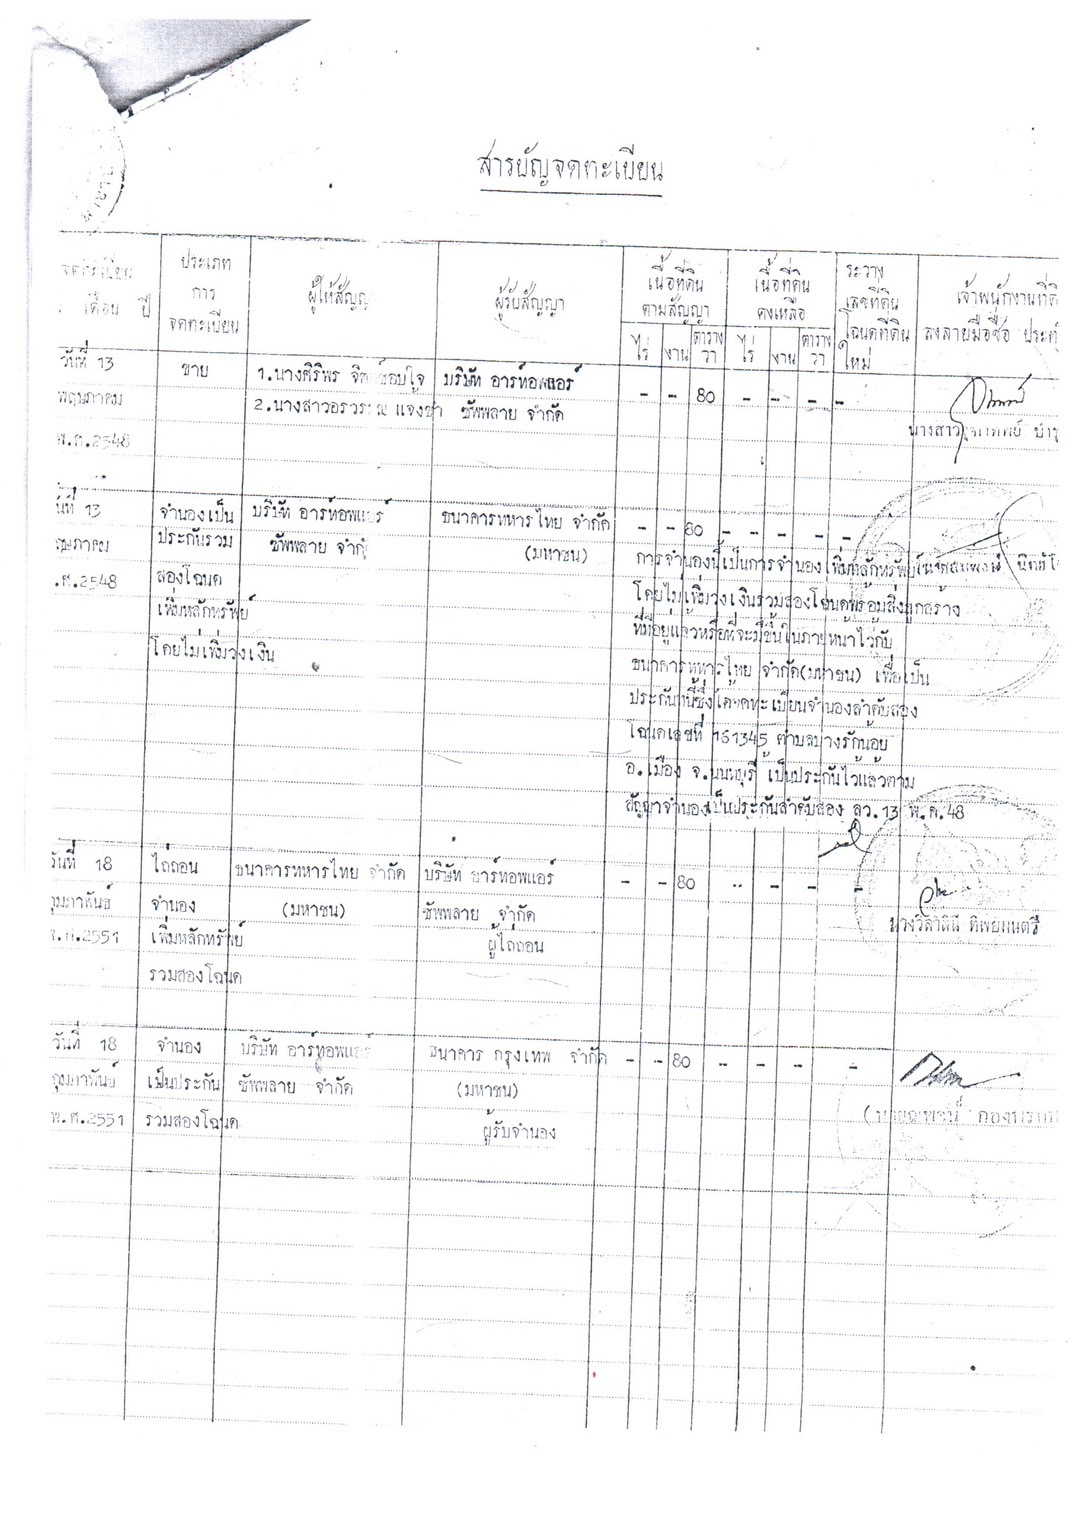 สารบัญจดทะเบียน
จดทะเบียน
เดือน ปี
ประเภท
การ
จดทะเบียน
ผู้ให้สัญญา
ผู้รับสัญญา
เนื้อที่ดิน
ตามสัญญา
ไร่ งาน ตาราง
วา
เนื้อที่ดิน
คงเหลือ
ไร่ งาน ตาราง
วา
ระวาง
เลขที่ดิน
โฉนดที่ดิน
ใหม่
เจ้าพนักงานที่ดิ
ลงลายมือชื่อ ประทั
วันที่ 13
พฤษภาคม
พ.ศ.2548
ขาย
1.นางศิริพร
2.นางสาวอรวรรณ แจงขำ
บริษัท อาร์ทอพแอร์
ซัพพลาย จำกัด
- - 80 - - - -
นางสาว
นที่ 13
ฤษภาคม
.ศ.2548
จำนองเป็น
ประกันรวม
สองโฉนด
เพิ่มหลักทรัพย์
โดยไม่เพิ่มวงเงิน
บริษัท อาร์ทอพแอร์
ซัพพลาย จำกั
ธนาคารทหารไทย จำกัด
(มหาชน)
- - 80 - - - -
การจำนองนี้เป็นการจำนองเพิ่มหลักทรัพย์
โดยไม่เพิ่มวงเงินรวมสองโฉนดพร้อมสิ่งปลูกสร้าง
ที่มีอยู่แล้วหรือที่จะมีขึ้นในภายหน้าไว้กับ
ธนาคารทหารไทย จำกัด(มหาชน) เพื่อเป็น
ประกันหนี้ซึ่งได้จดทะเบียนจำนองลำดับสอง
โฉนดเลขที่ 161345 ตำบลบางรักน้อย
อ.เมือง จ.นนทบุรี เป็นประกันไว้แล้วตาม
สัญญาจำนองเป็นประกันลำดับสอง ลว.13 พ.ค.48
วันที่ 18
กุมภาพันธ์
พ.ศ.2551
ไถ่ถอน
จำนอง
เพิ่มหลักทรัพย์
รวมสองโฉนด
ธนาคารทหารไทย จำกัด
(มหาชน)
บริษัท อาร์ทอพแอร์
ซัพพลาย จำกัด
ผู้ไถ่ถอน
- - 80 - - - -
นางวิลาสินี ทิพยมนตรี
วันที่ 18
กุมภาพันธ์
พ.ศ.2551
จำนอง
เป็นประกัน
รวมสองโฉนด
บริษัท อาร์ทอพแอร์
ซัพพลาย จำกัด
ธนาคาร กรุงเทพ จำกัด
(มหาชน)
ผู้รับจำนอง
- - 80 - - - -